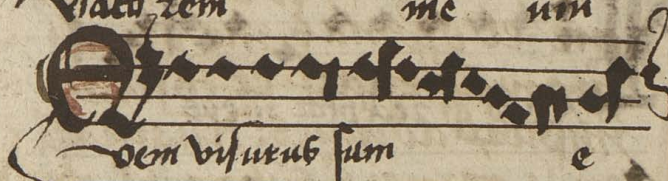 viatorem meum
Quem visurus sum e